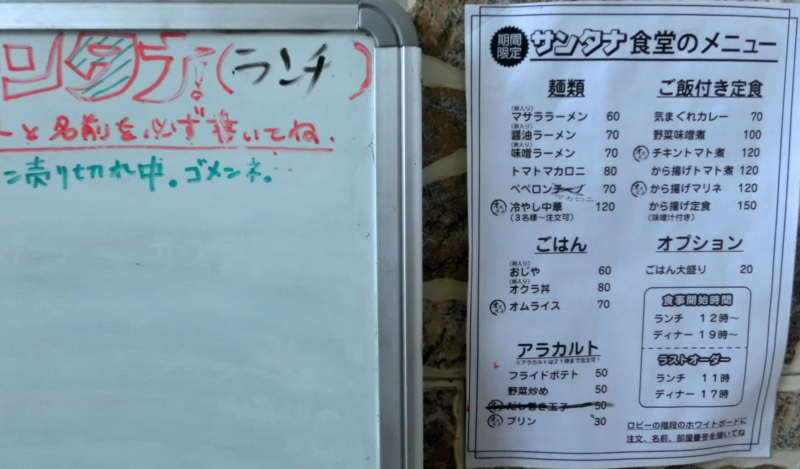 ンタナ！（ランチ）
と名前を必ず書いてね．
ン売り切れ中。ゴメンネ。
期間限定 サンタナ食堂のメニュー
麺類
(卵入り)
マサララーメン 60
(卵入り)
醤油ラーメン 70
(卵入り)
味噌ラーメン 70
トマトマカロニ 80
ペペロンチーノ 70
マカロニ
冷やし中華 120
(３名様～注文可)
ごはん
(卵入り)
おじや 60
(卵入り)
オクラ丼 80
オムライス 70
アラカルト
※アラカルトは２１時まで注文可！
フライドポテト 50
野菜炒め 50
だし巻き玉子 50
プリン 30
ご飯付き定食
気まぐれカレー 70
野菜味噌煮 100
チキントマト煮 120
から揚げトマト煮 120
から揚げマリネ 120
から揚げ定食 150
(味噌汁付き)
オプション
ごはん大盛り 20
食事開始時間
ランチ １２時～
ディナー １９時～
ラストオーダー
ランチ １１時
ディナー １７時
ロビーの階段のホワイトボードに
注文、名前、部屋番号を書いてね